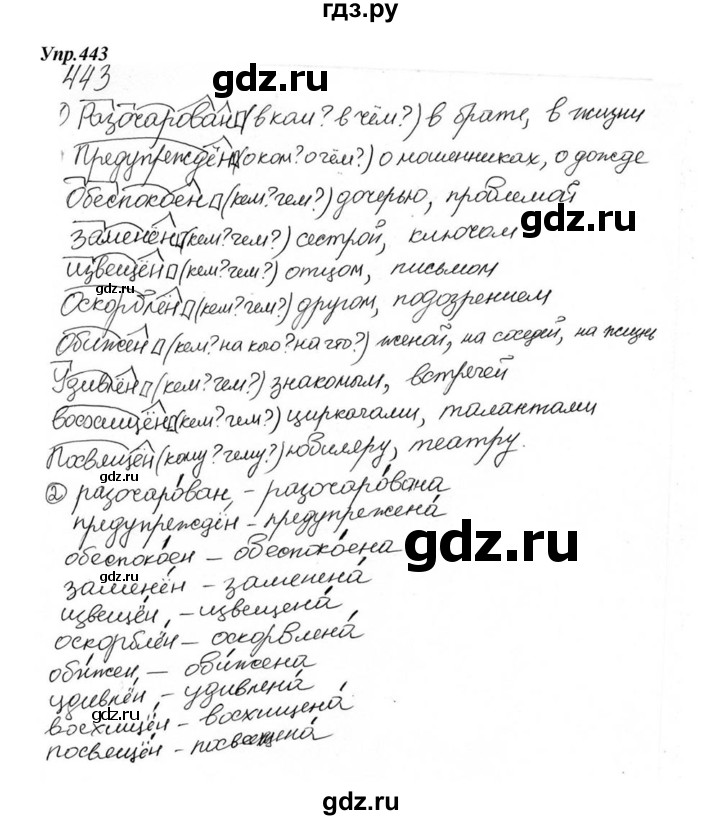 гдз.ру
Упр.443
443
1) Разочарован (в ком? в чём?) в брате, в жизни
Предупреждён (о ком? о чём?) о мошенниках, о дожде
Обеспокоен (кем? чем?) дочерью, проблемой
Заменён (кем? чем?) сестрой, ключом
Извещён (кем? чем?) отцом, письмом
Оскорблён (кем? чем?) другом, подозрением
Обижен (кем? на кого? на что?) женой, на соседей, на жизнь
Удивлён (кем? чем?) знакомым, встречей
Восхищён (кем? чем?) циркачами, талантами
Посвящён (кому? чему?) юбиляру, театру.
② разоча́рован, – разочаро́вана
предупреждён – предупрежена́
обеспоко́ен – обеспоко́ена
заменён – заменена́
извещён, – извещена́
оскорблён – оскорблена́
оби́жен, – оби́жена
удивлён, – удивлена́
восхищён – восхищена́
посвящён – посвещена́
gdz.ru
gdz.ru
gdz.ru
gdz.ru
gdz.ru
gdz.ru
gdz.ru
gdz.ru
gdz.ru